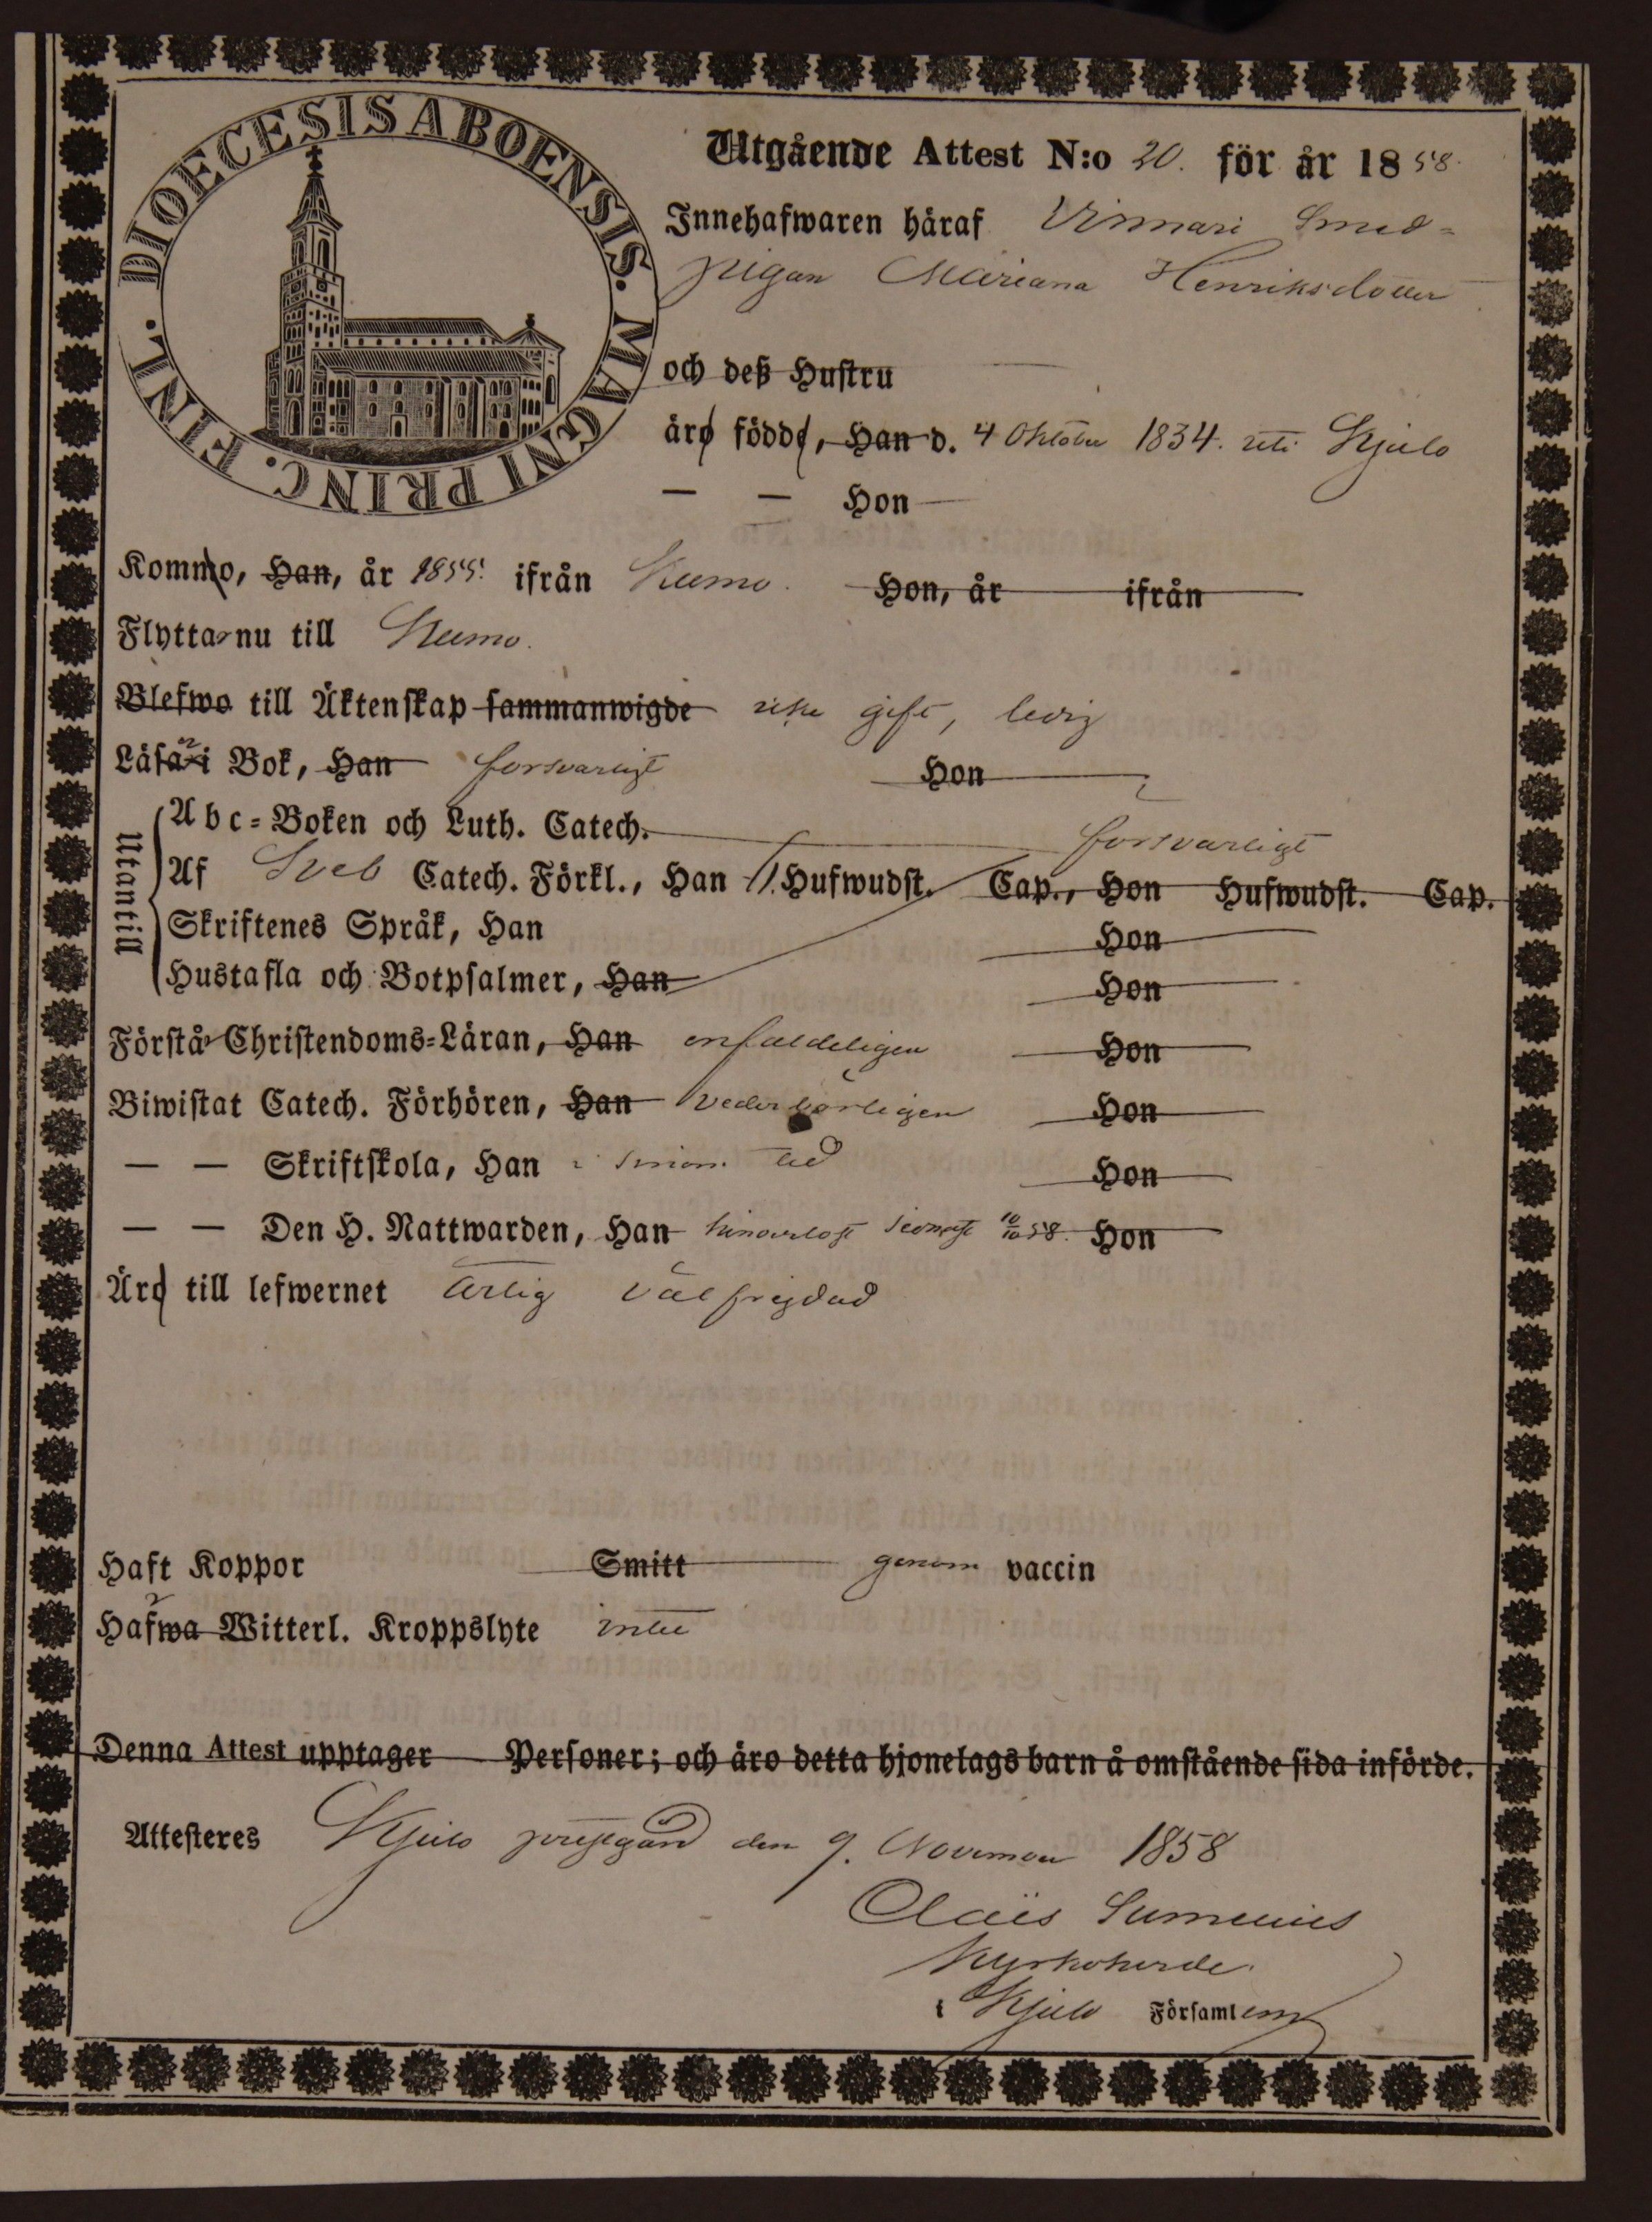 DIOECESIS ABOENSIS. MAGNI PRINC. FINL.
Utgående Attest N:o 20. för år 1858.
Innehafwaren häraf Vinnari Smed=
pigan Mariana Henriksdotter
och deß Hustru
äro födde, Han d. 4 Oktober 1834. uti Kjulo
— — Hon
Kommo, Han, år 1855. ifrån Kumo. Hon, år ifrån
Flytta nu till Kumo.
Blefwo till Äktenskap sammanwigde icke gift, ledig
Läsa i Bok, Han försvarligt Hon
Utantill
Abc=Boken och Luth. Catech. försvarligt
Af Sveb Catech. Förkl., Han Hufwudst. Cap., Hon Hufwudst. Cap.
Skriftenes Språk, Han Hon
Hustafla och Botpsalmer, Han Hon
Förstå Christendoms=Läran, Han enfaldeligen Hon
Biwistat Catech. Förhören, Han vederbörligen Hon
— — Skriftskola, Han i sinom tid Hon
— — Den H. Nattwarden, Han hinderlöst sednast 10/10 58. Hon
Äro till lefwernet ärlig välfrejdad
Haft Koppor Smitt genom vaccin
Hafwa Witterl. Kroppslyte intet
Denna Attest upptager Personer; och äro detta hjonelags barn å omstående sida införde.
Attesteres Kjulo prestgård den 9. November 1858
Claës Sumelius
Kyrkoherde
i Kjulo Församl